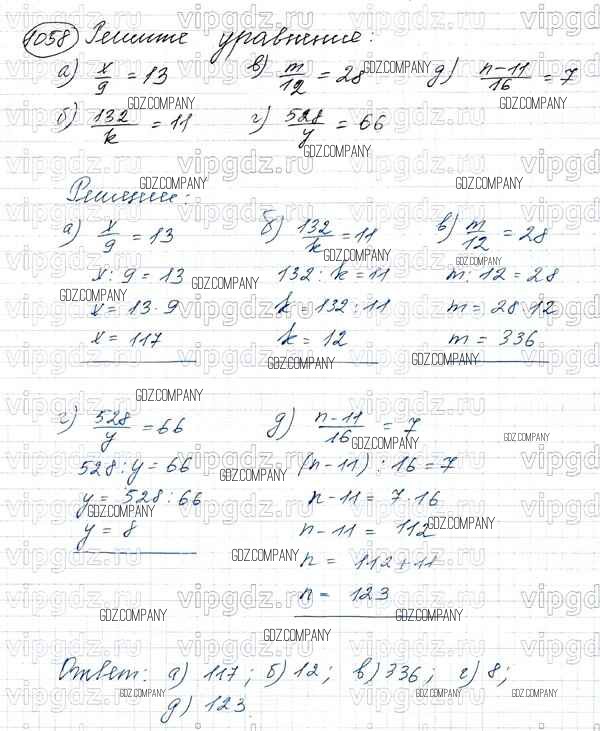 1058 Решите уравнение:
а) x/9 = 13   в) m/12 = 28   д) n-11/16 = 7
б) 132/k = 11   г) 528/y = 66
Решение:
а) x/9 = 13   б) 132/k = 11   в) m/12 = 28
x : 9 = 13   132 : k = 11   m : 12 = 28
x = 13 · 9   k = 132 : 11   m = 28 · 12
x = 117   k = 12   m = 336
г) 528/y = 66   д) n-11/16 = 7
528 : y = 66   (n-11) : 16 = 7
y = 528 : 66   n-11 = 7 · 16
y = 8   n-11 = 112
n = 112 + 11
n = 123
Ответ: а) 117; б) 12; в) 336; г) 8;
д) 123.
vipgdz.ru
GDZ.COMPANY